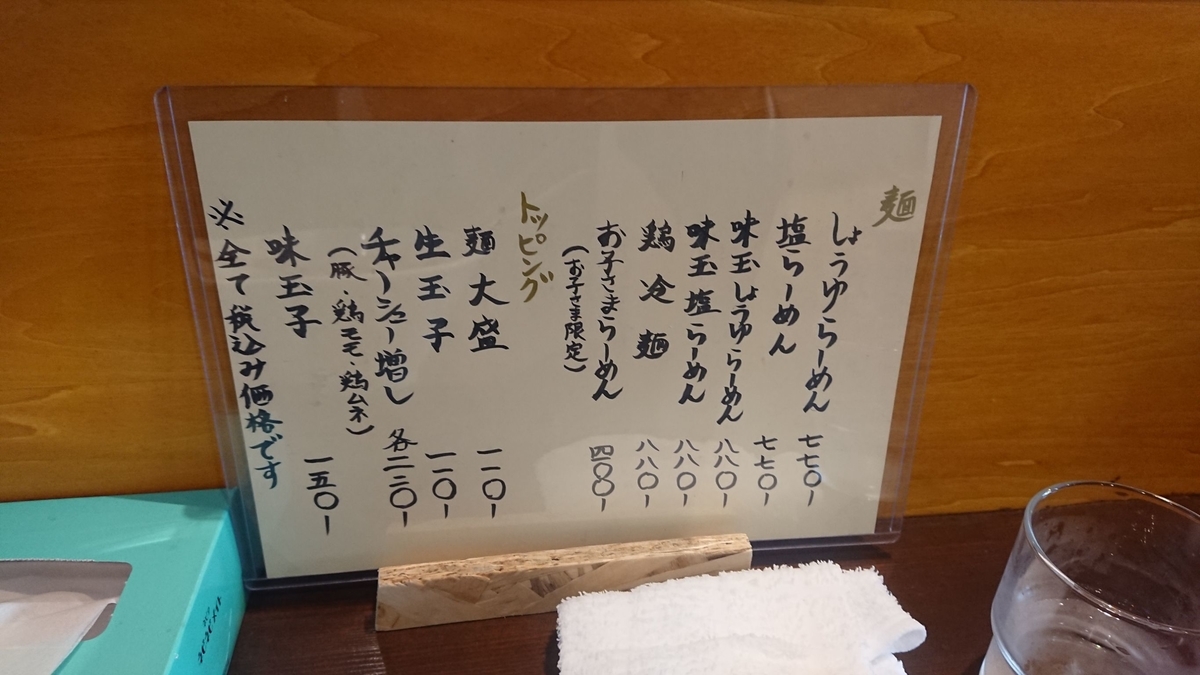 麺
しょうゆらーめん 七七〇-
塩らーめん 七七〇-
味玉しょうゆらーめん 八八〇-
味玉塩らーめん 八八〇-
鶏冷麺 八八〇-
お子さまらーめん 四〇〇-
(お子さま限定)
トッピング
麺大盛 一一〇-
生玉子 一一〇-
チャーシュー増し 各二二〇-
(豚・鶏モモ・鶏ムネ)
味玉子 一五〇-
※全て税込み価格です